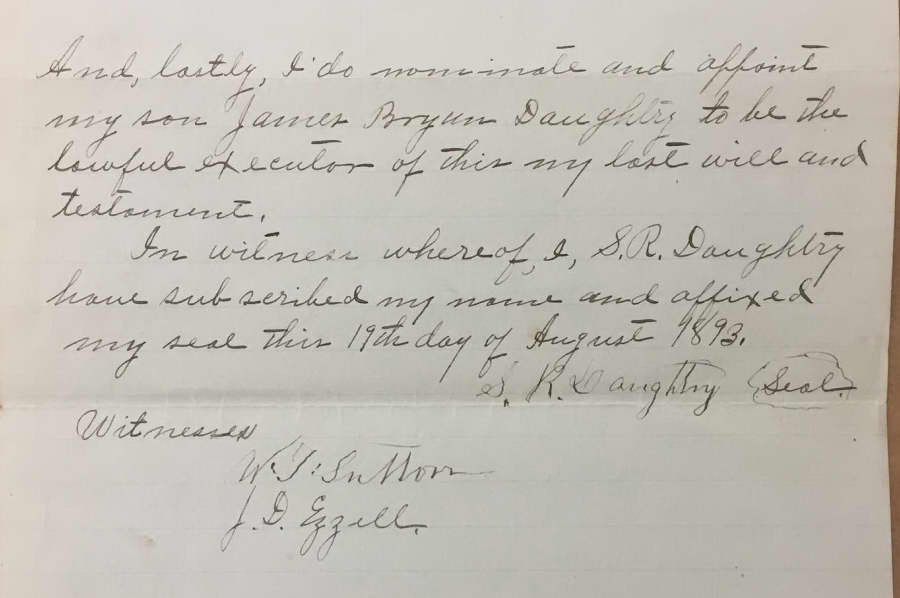 And, lastly, I do nominate and appoint
my son James Bryan Daughtry to be the
lawful executor of this my last will and
testament.
In witness whereof, I, S.R. Daughtry
have subscribed my name and affixed
my seal this 19th day of August 1893.
S. R. Daughtry (Seal.)
Witnesses
W. T. Sutton
J. D. Ezzell.